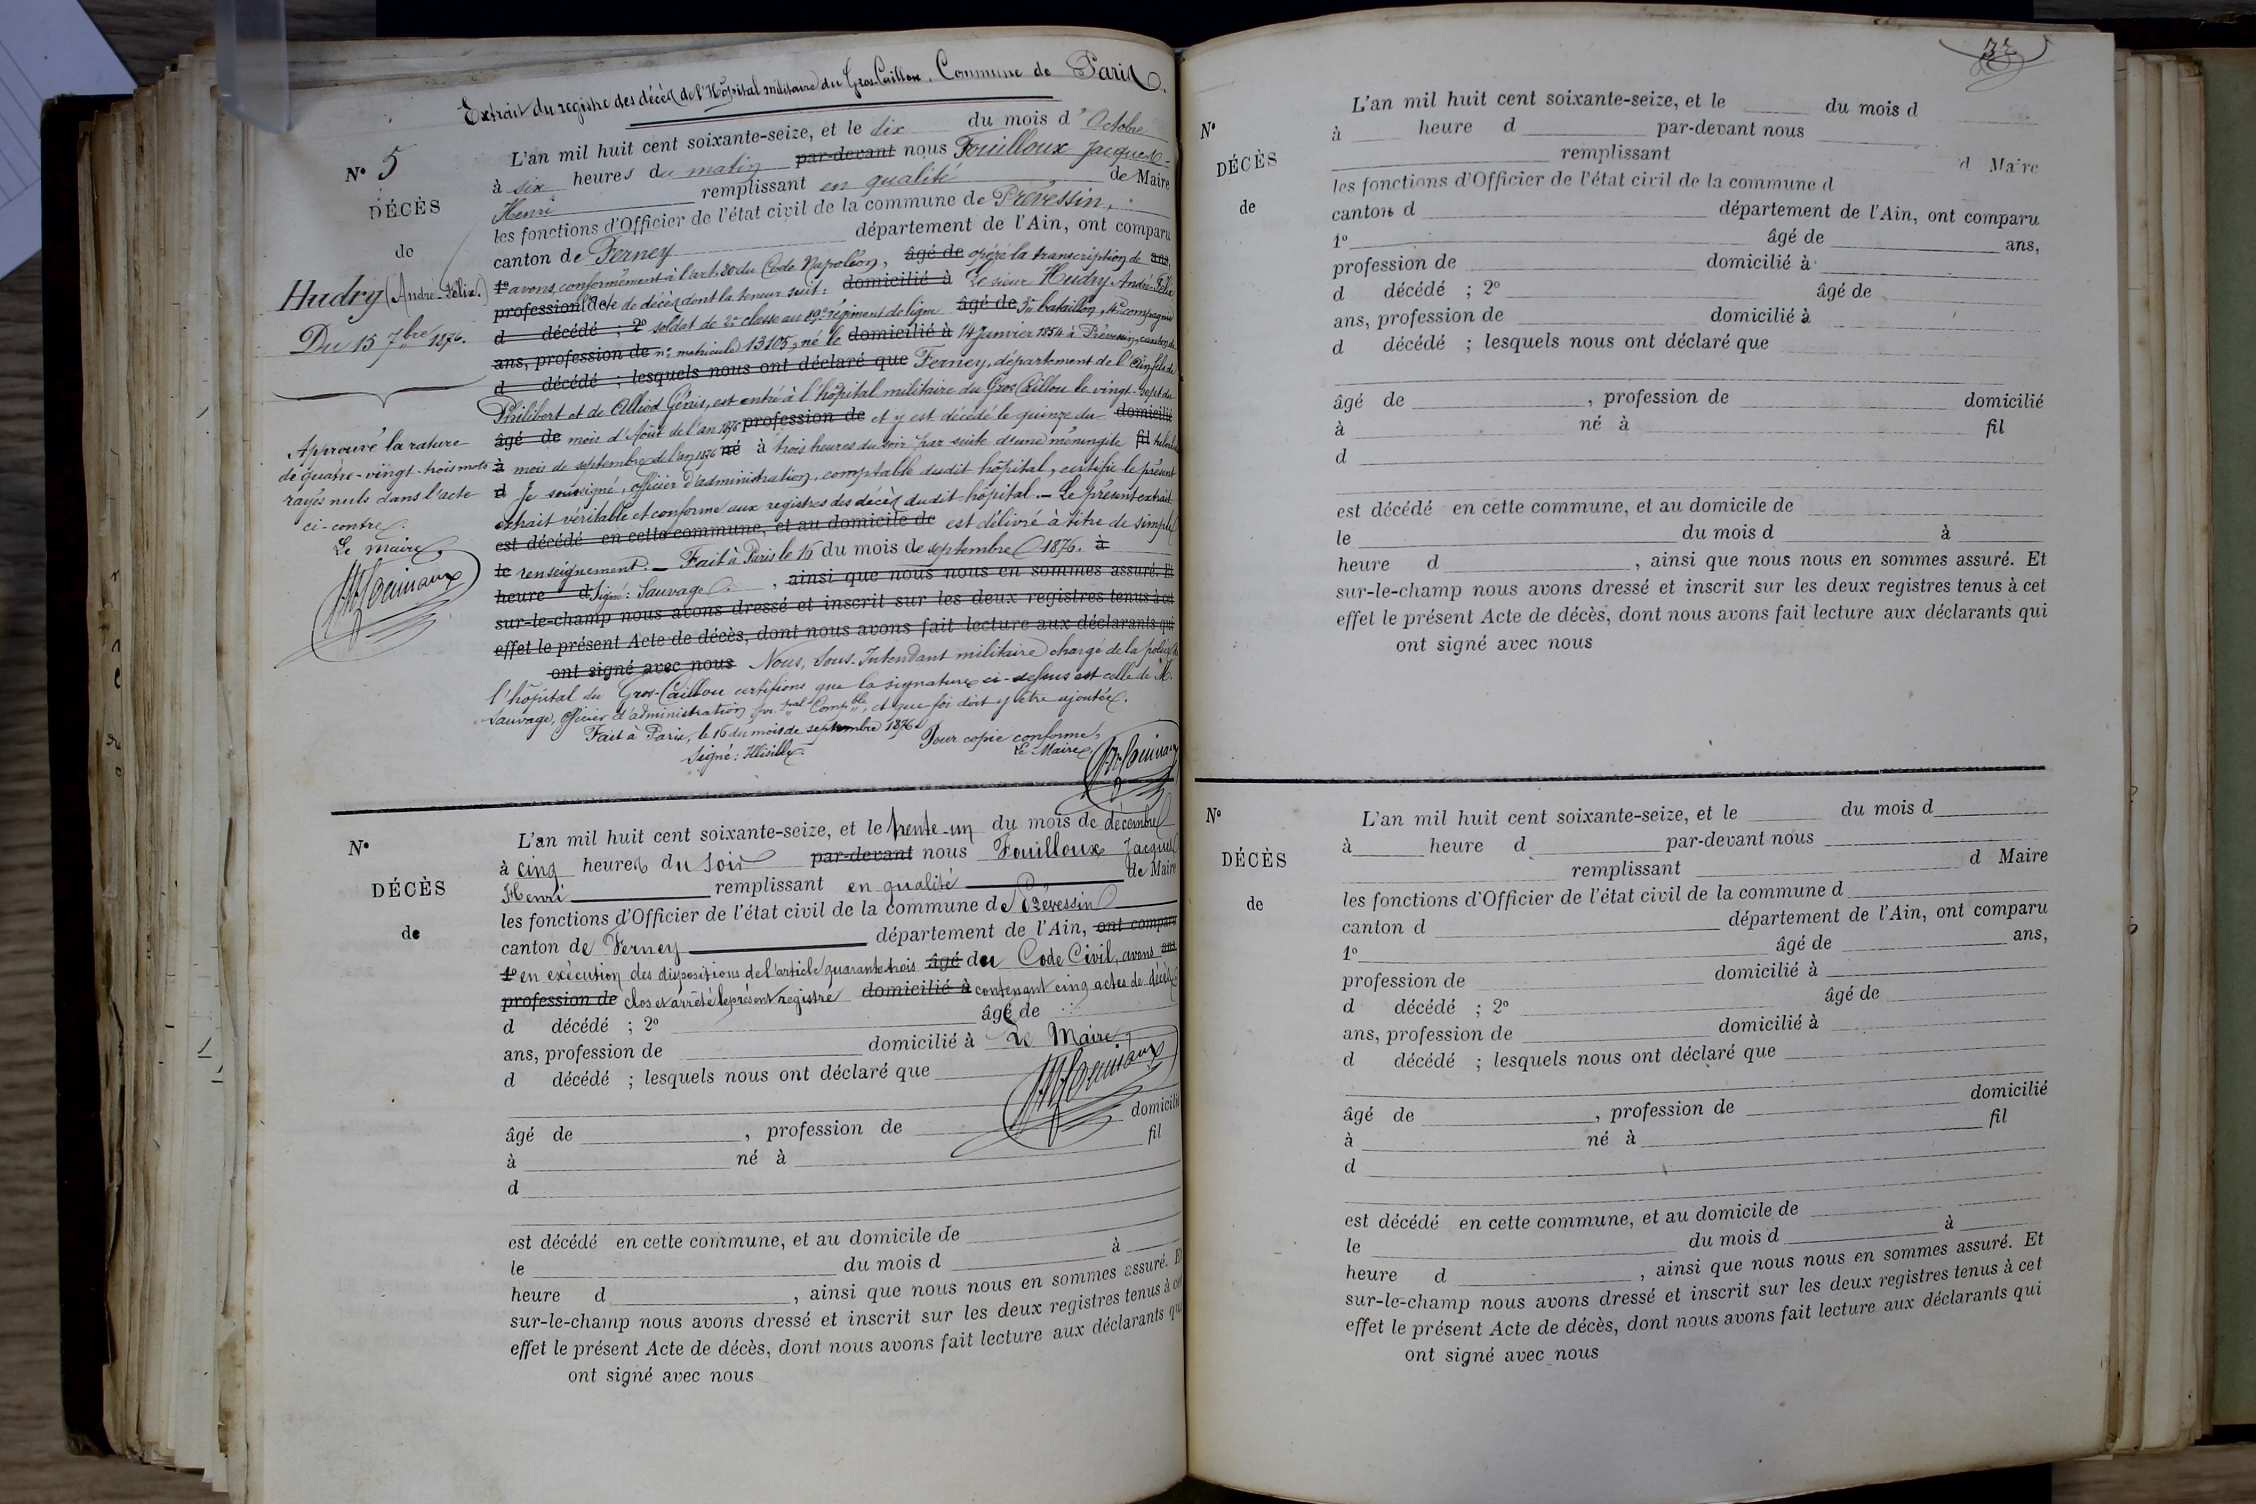 Extrait du registre des décès de l'Hôpital militaire du Gros-Caillou. Commune de Paris.
N° 5
DÉCÈS
de
Hudry (André-Félix.)
Du 15 7bre 1876.
Approuvé la rature
de quatre-vingt-trois mots
rayés nuls dans l'acte
ci-contre.
Le maire,
L'an mil huit cent soixante-seize, et le dix du mois d'Octobre
à six heures du matin par-devant nous Fouilloux Jacques-
Henri remplissant en qualité de Maire
les fonctions d'Officier de l'état civil de la commune de Prévessin,
canton de Ferney département de l'Ain, ont comparu
1° avons, conformément à l'art. 80 du Code Napoléon, âgé de opéré la transcription de ans,
profession de l'acte de décès dont la teneur suit: domicilié à Le sieur Hudry André-Félix
d décédé ; 2° soldat de 2e classe au 89e régiment de ligne âgé de 3e bataillon, 4e compagnie
ans, profession de n° matricule 13105, né le domicilié à 14 Janvier 1854 à Prévessin, canton de
d décédé ; lesquels nous ont déclaré que Ferney, département de l'Ain, fils de
Philibert et de Alliod Génis, est entré à l'hôpital militaire du Gros-Caillou le vingt-sept du
âgé de mois d'Août de l'an 1876 profession de et y est décédé le quinze du domicilié
à mois de septembre de l'an 1876 né à trois heures du soir par suite d'une méningite fil
d Je soussigné, officier d'administration, comptable dudit hôpital, certifie le présent
extrait véritable et conforme aux registres des décès dudit hôpital. — Le présent extrait
est décédé en cette commune, et au domicile de est délivré à titre de simple
le renseignement. — Fait à Paris le 16 du mois de septembre 1876. à
heure d Signé: Sauvage , ainsi que nous nous en sommes assuré. Et
sur-le-champ nous avons dressé et inscrit sur les deux registres tenus à cet
effet le présent Acte de décès, dont nous avons fait lecture aux déclarants qui
ont signé avec nous Nous, Sous-Intendant militaire chargé de la police de
l'hôpital du Gros-Caillou certifions que la signature ci-dessus est celle de M.
Sauvage, officier d'administration pal Compble, et que foi doit y être ajoutée.
Fait à Paris, le 16 du mois de septembre 1876.
Pour copie conforme,
Signé:
Le Maire,
N°
DÉCÈS
de
L'an mil huit cent soixante-seize, et le trente-un du mois de décembre
à cinq heures du soir par-devant nous Fouilloux Jacques
Henri remplissant en qualité de Maire
les fonctions d'Officier de l'état civil de la commune de Prévessin
canton de Ferney département de l'Ain, ont comparu
1° en exécution des dispositions de l'article quarante trois âgé du Code Civil, avons ans,
profession de clos et arrêté le présent registre domicilié à contenant cinq actes de décès
d décédé ; 2° âgé de
ans, profession de domicilié à Le Maire
d décédé ; lesquels nous ont déclaré que
âgé de , profession de domicilié
à né à fil
d
est décédé en cette commune, et au domicile de
le du mois d à
heure d , ainsi que nous nous en sommes assuré. Et
sur-le-champ nous avons dressé et inscrit sur les deux registres tenus à cet
effet le présent Acte de décès, dont nous avons fait lecture aux déclarants qui
ont signé avec nous
N°
DÉCÈS
de
L'an mil huit cent soixante-seize, et le du mois d
à heure d par-devant nous
remplissant d Maire
les fonctions d'Officier de l'état civil de la commune d
canton d département de l'Ain, ont comparu
1° âgé de ans,
profession de domicilié à
d décédé ; 2° âgé de
ans, profession de domicilié à
d décédé ; lesquels nous ont déclaré que
âgé de , profession de domicilié
à né à fil
d
est décédé en cette commune, et au domicile de
le du mois d à
heure d , ainsi que nous nous en sommes assuré. Et
sur-le-champ nous avons dressé et inscrit sur les deux registres tenus à cet
effet le présent Acte de décès, dont nous avons fait lecture aux déclarants qui
ont signé avec nous
N°
DÉCÈS
de
L'an mil huit cent soixante-seize, et le du mois d
à heure d par-devant nous
remplissant d Maire
les fonctions d'Officier de l'état civil de la commune d
canton d département de l'Ain, ont comparu
1° âgé de ans,
profession de domicilié à
d décédé ; 2° âgé de
ans, profession de domicilié à
d décédé ; lesquels nous ont déclaré que
âgé de , profession de domicilié
à né à fil
d
est décédé en cette commune, et au domicile de
le du mois d à
heure d , ainsi que nous nous en sommes assuré. Et
sur-le-champ nous avons dressé et inscrit sur les deux registres tenus à cet
effet le présent Acte de décès, dont nous avons fait lecture aux déclarants qui
ont signé avec nous